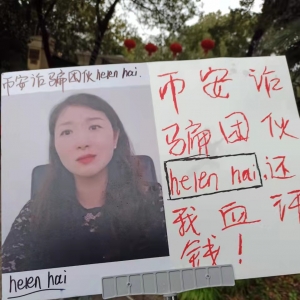 币安诈骗团伙helen hai.
helen hai
币安诈
骗团伙
helen hai,还
我血汗
钱!